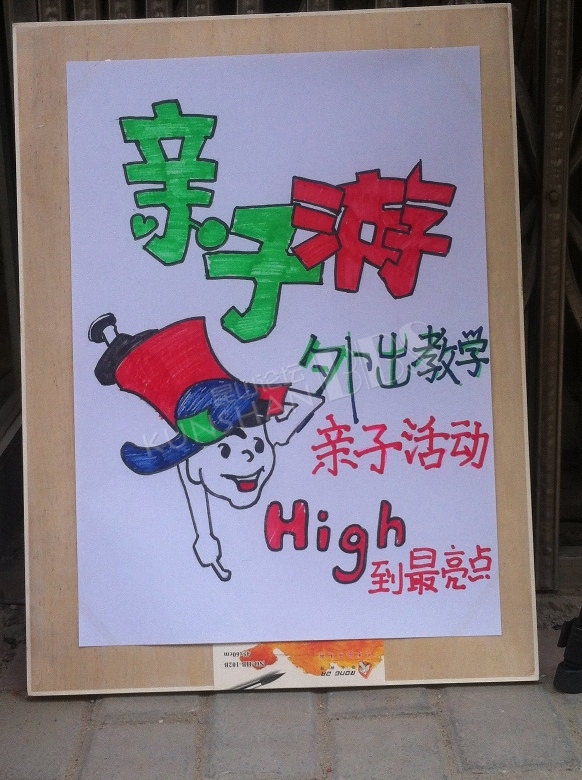 亲子游
外出教学
亲子活动
High
到最亮点